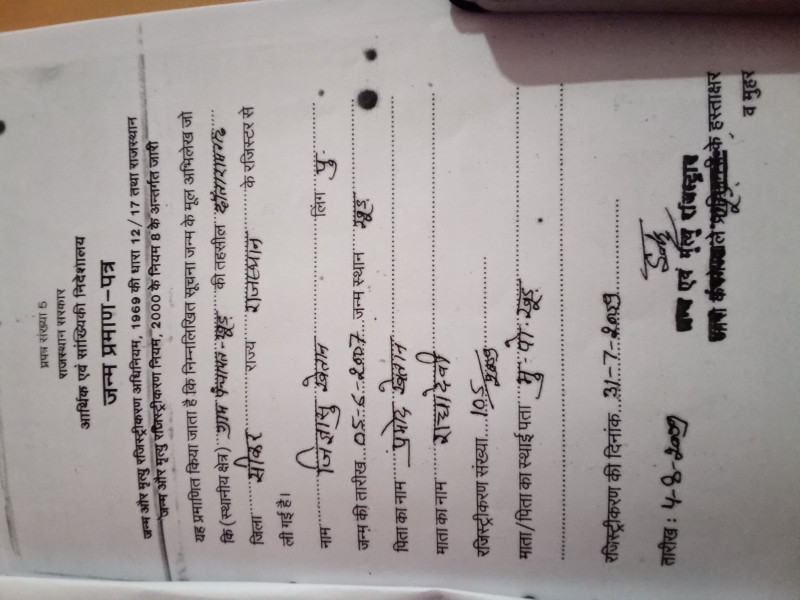 प्रपत्र संख्या 5
राजस्थान सरकार
आर्थिक एवं सांख्यिकी निदेशालय
जन्म प्रमाण–पत्र
जन्म और मृत्यु रजिस्ट्रीकरण अधिनियम, 1969 की धारा 12/17 तथा राजस्थान
जन्म और मृत्यु रजिस्ट्रीकरण नियम, 2000 के नियम 8 के अन्तर्गत जारी
यह प्रमाणित किया जाता है कि निम्नलिखित सूचना जन्म के मूल अभिलेख जो
कि (स्थानीय क्षेत्र) ग्राम पंचायत - खूड की तहसील दांतारामगढ़
जिला सीकर राज्य राजस्थान के रजिस्टर से
ली गई है।
नाम लिंग पु.
जन्म की तारीख 05-6-2007 जन्म स्थान खूड
पिता का नाम
माता का नाम
रजिस्ट्रीकरण संख्या 105/2009
माता/पिता का स्थाई पता मु. पो. खूड
रजिस्ट्रीकरण की दिनांक 31-7-2009
तारीख : 4-8-2009
जन्म एवं मृत्यु रजिस्ट्रार
के हस्ताक्षर
व मुहर